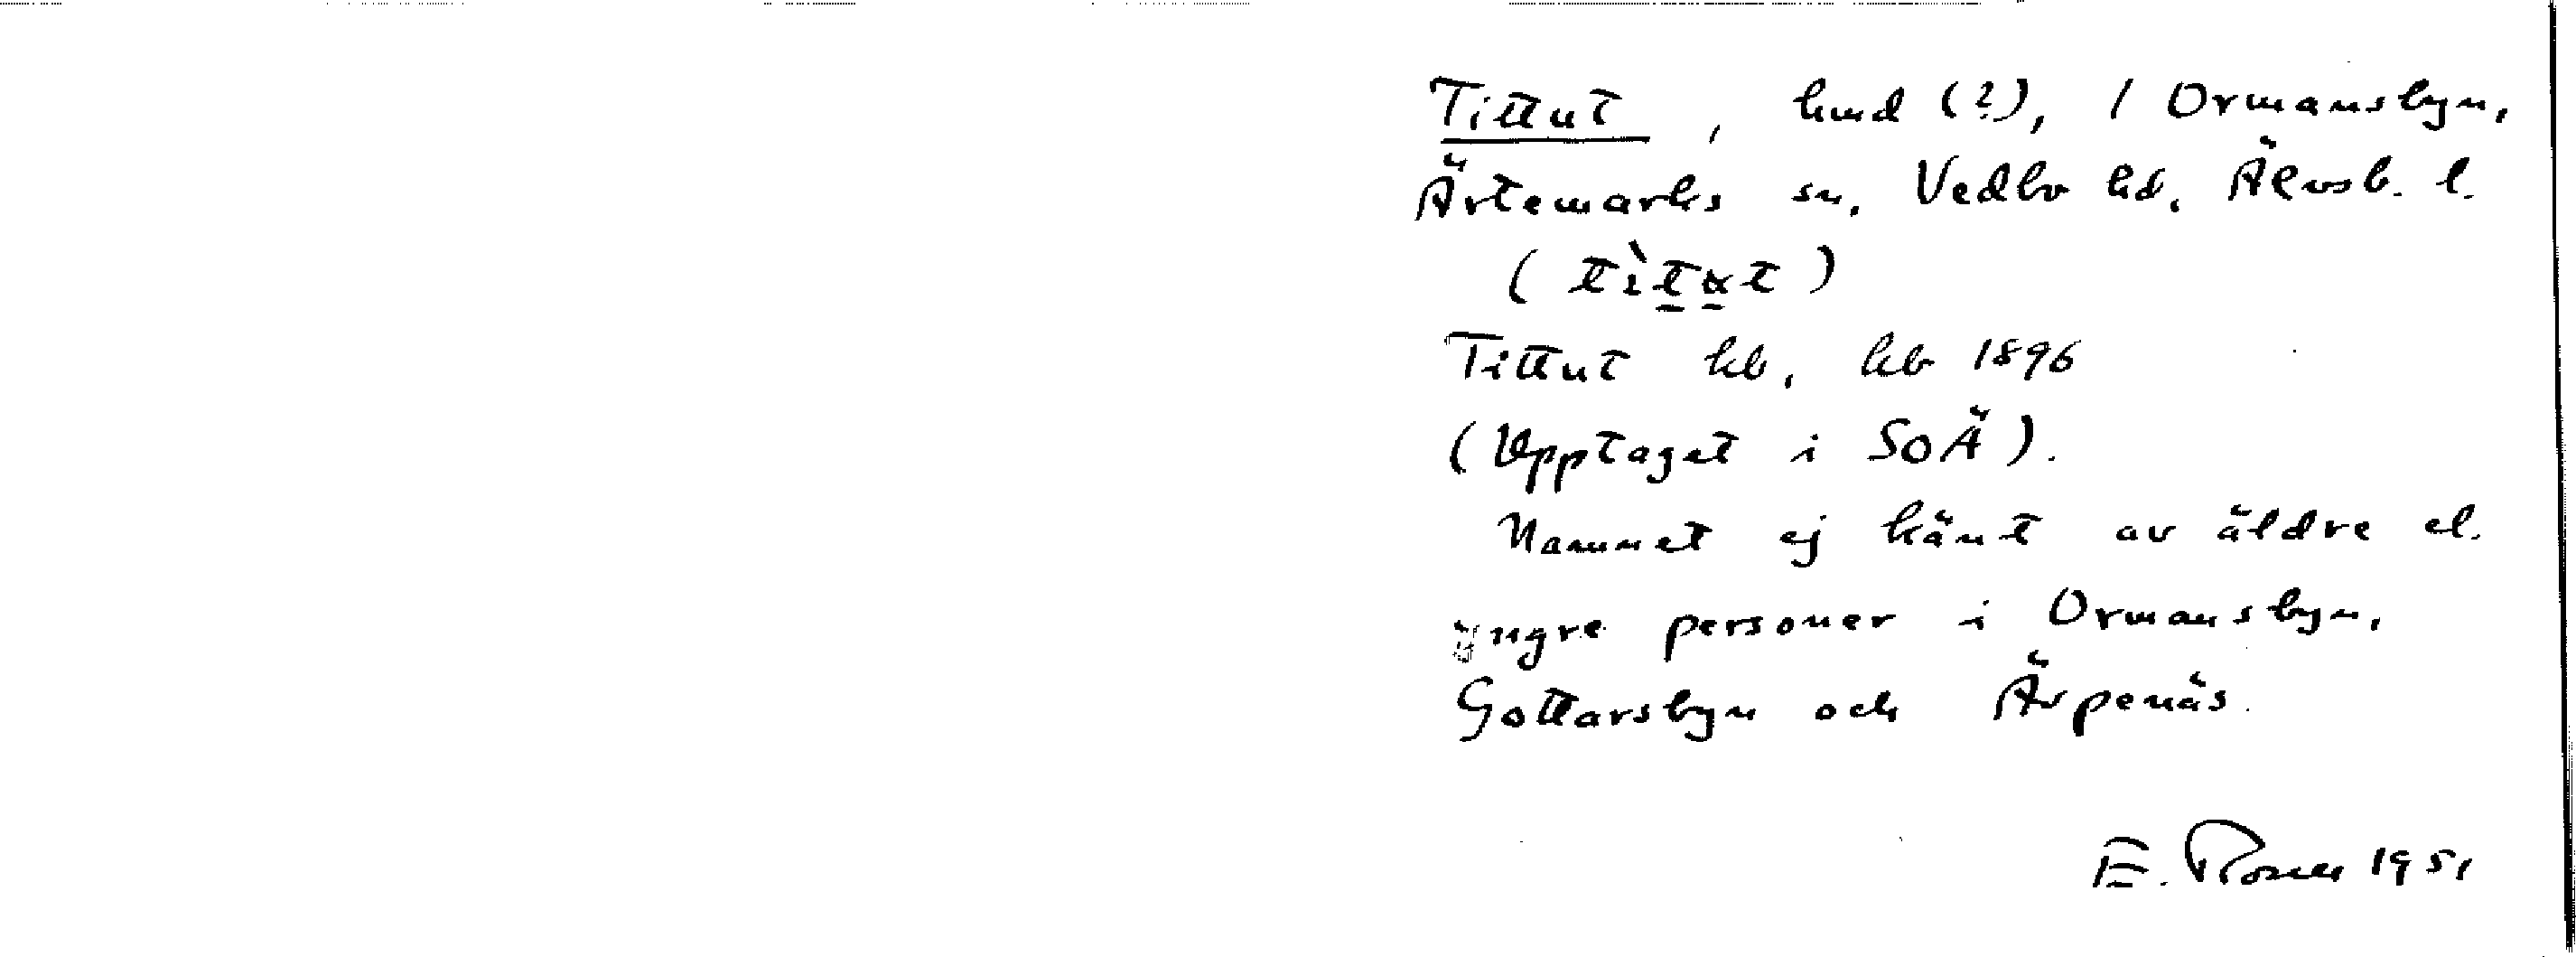 Tittut, hmd (?), / Ormansbyn,
Ärtemarks sn, Vedbo hd, Älvsb. l.
Tittut hb, kb 1896
(Upptaget i SOÄ).
Namnet ej känt av äldre el.
yngre personer i Ormansbyn,
Gottarsbyn och Ärpenäs.
E. Rosell 1951